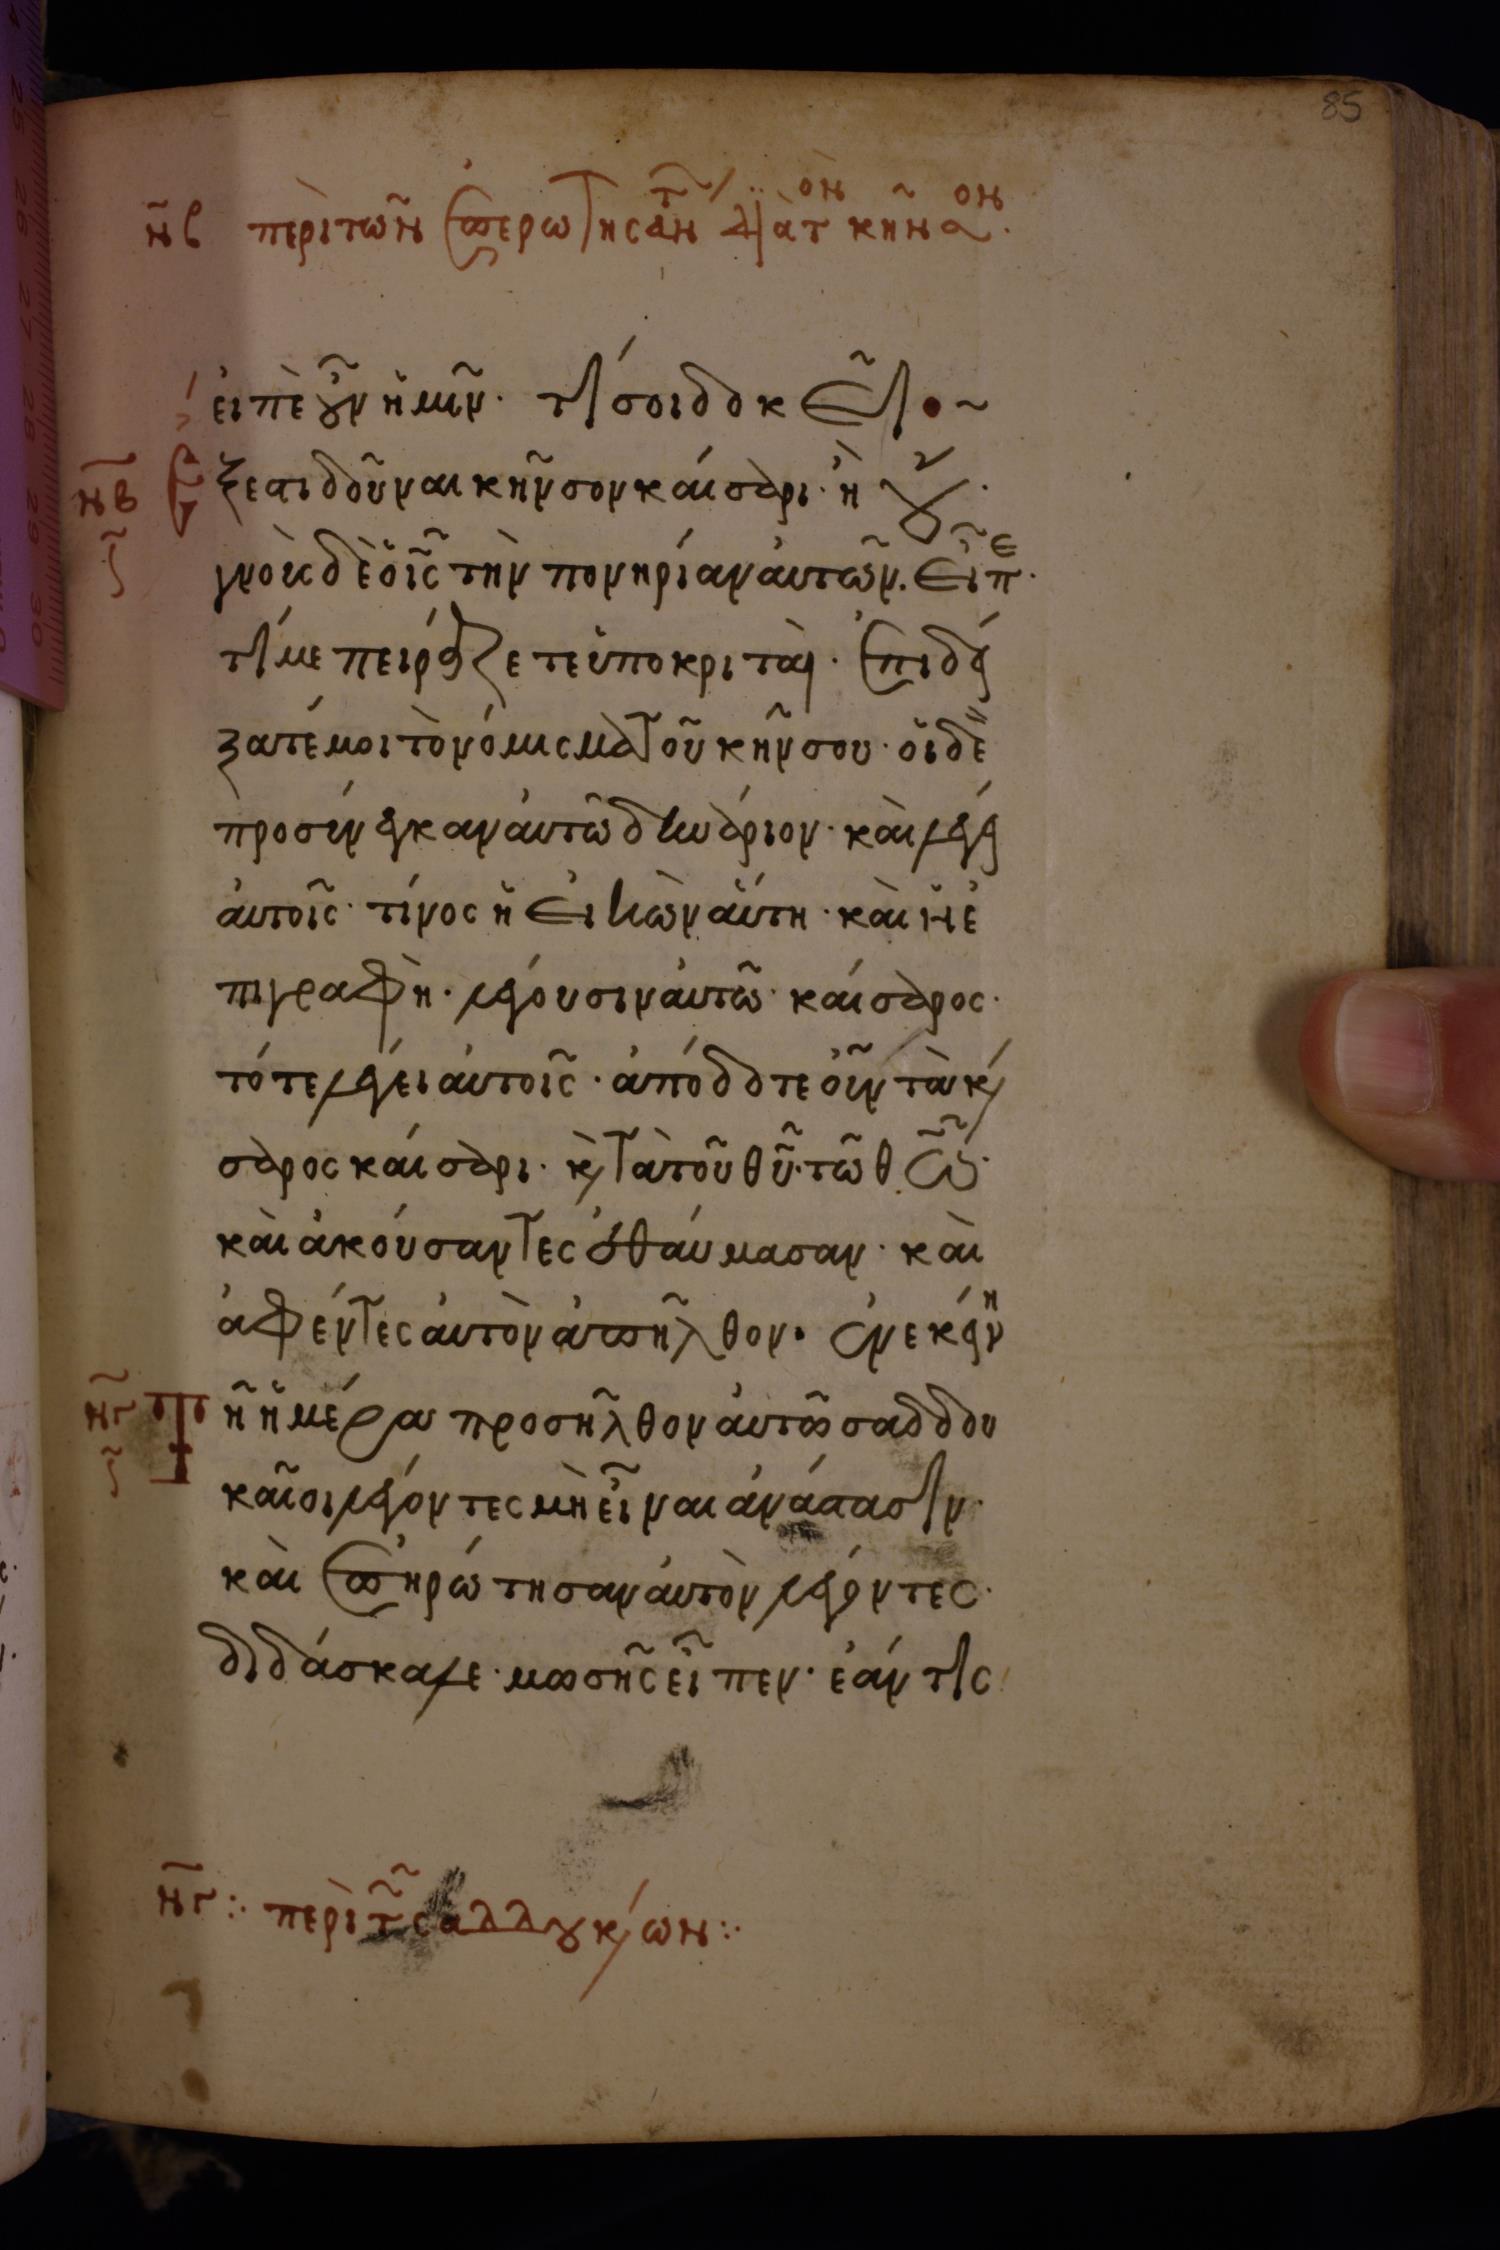 85
ν̃β περὶ τῶν ἐπερωτησάντ(ων) διὰ τὸν κῆνσον.
εἰπὲ οὖν ἡμῖν. τί σοι δοκεῖ·
ν̃β ἔξεστι δοῦναι κῆνσον καίσαρι. ἢ οὔ.
γνοὺς δὲ ὁ ι̅ς̅ τὴν πονηρίαν αὐτῶν. εἶπε.
τί με πειράζετε ὑποκριταί. ἐπιδεί
ξατέ μοι τὸ νόμισμα τοῦ κήνσου. οἱ δὲ
προσήνεγκαν αὐτῶ δηνάριον. καὶ λέγει
αὐτοῖς. τίνος ἡ εἰκὼν αὕτη. καὶ ἡ ἐ
πιγραφή. λέγουσιν αὐτῶ. καίσαρος.
τότε λέγει αὐτοῖς. ἀπόδοτε οὖν τὰ καί
σαρος καίσαρι. καὶ τὰ τοῦ θ̅υ̅. τῶ θ̅ω̅.
καὶ ἀκούσαντες ἐθαύμασαν. καὶ
ἀφέντες αὐτὸν ἀπῆλθον. ἐν ἐκείνη
ν̃γ τῆ ἡμέρα προσῆλθον αὐτῶ σαδδου
καῖοι λέγοντες μὴ εἶναι ἀνάστασιν.
καὶ ἐπηρώτησαν αὐτὸν λέγοντες.
διδάσκαλε. μωσῆς εἶπεν. ἐάν τις
ν̃γ: περὶ τῶν σαδδουκαίων: